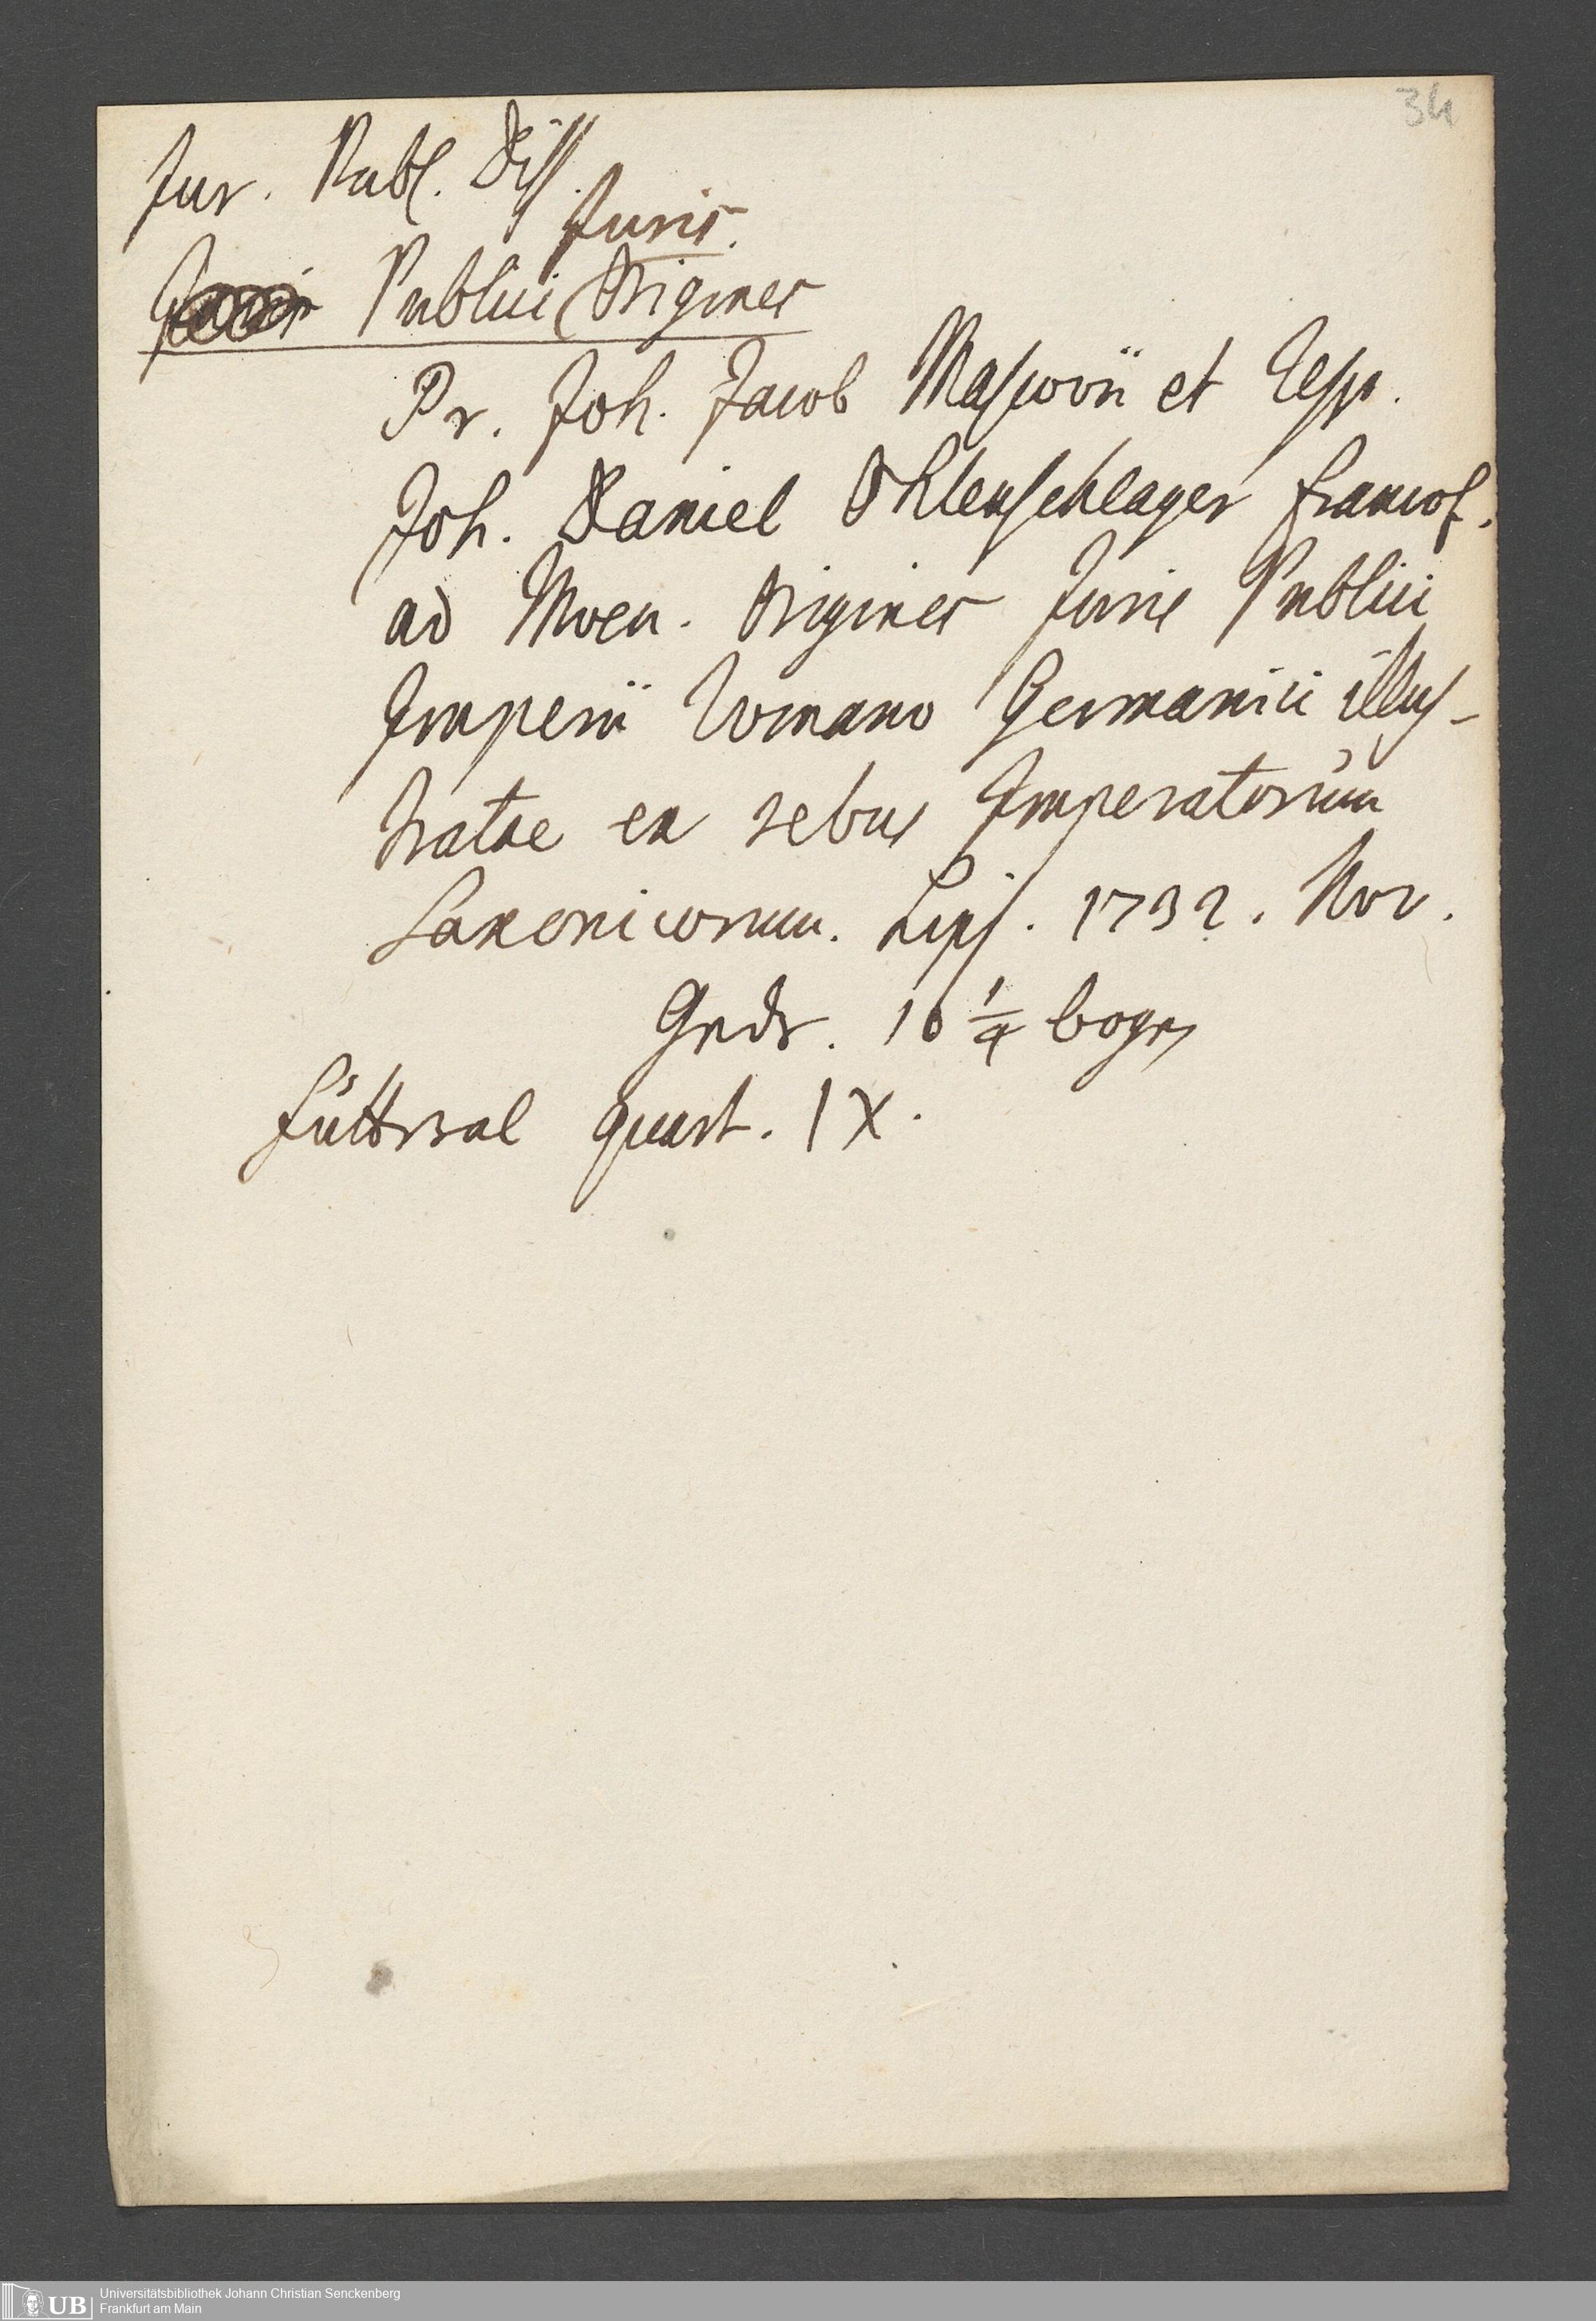 34
Jur. Publ. Diss.
Juris.
Juris Publici Origines
Pr. Joh. Jacob Mascovii et Resp.
Joh. Daniel Ohlenschlager francof.
ad Moen. Origines Juris Publici
Imperii Romano Germanici illus-
tratae ex rebus Imperatorum
Saxonicorum. Lips. 1732. Nov.
Gedr. 16 1/4 bogen
futtral quart. IX.
UB Universitätsbibliothek Johann Christian Senckenberg
Frankfurt am Main